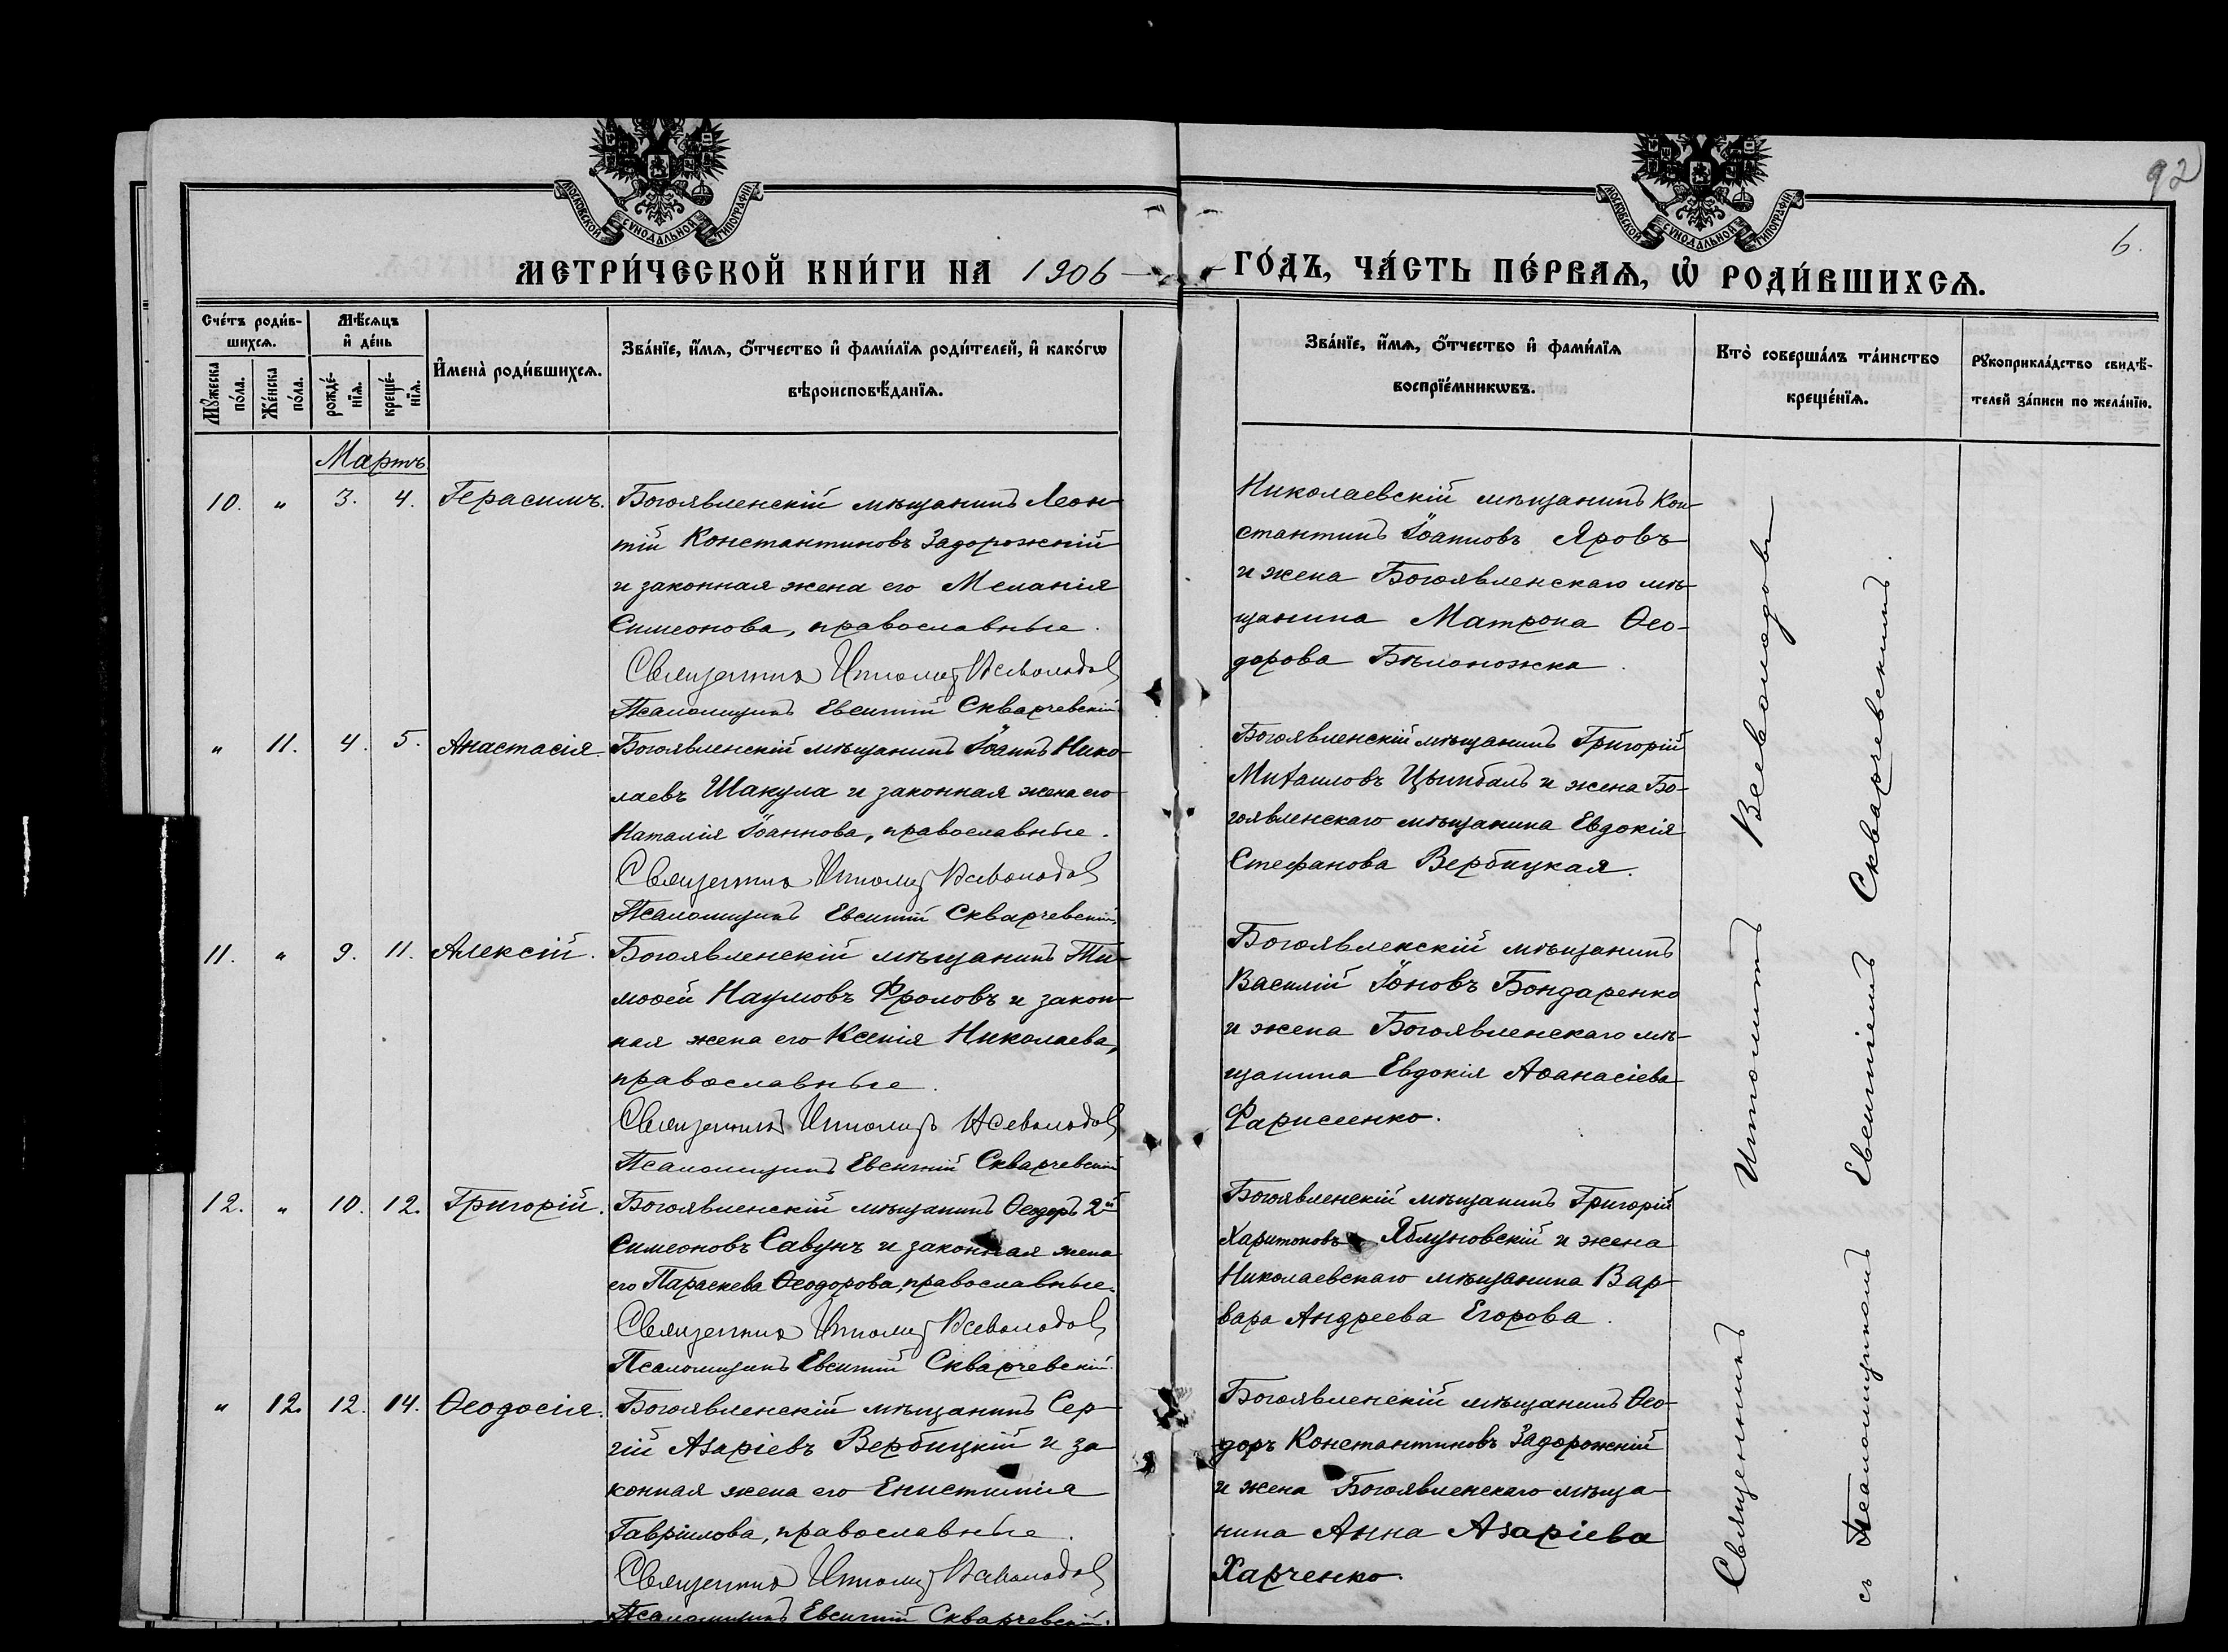 92
6.
МОСКОВСКОЙ СУНОДАЛЬНОЙ ТИПОГРАФІИ
МОСКОВСКОЙ СУНОДАЛЬНОЙ ТИПОГРАФІИ
МЕТРИ́ЧЕСКОЙ КНИ́ГИ НА 1906
ГО́ДЪ, ЧА́СТЬ ПЕ́РВАѦ, Ѡ҆ РОДИ́ВШИХСѦ.
Сче́тъ роди́в-
шихсѧ.
Мꙋ́жеска по́ла.
Же́нска по́ла.
Мѣ́сѧцъ
и҆ де́нь
рожде́-
нїѧ.
креще́-
нїѧ.
И҆мена̀ роди́вшихсѧ.
Зва́нїе, и҆́мѧ, ѻ҆́тчество и҆ фами́лїѧ роди́телей, и҆ како́гѡ
вѣроисповѣ́данїѧ.
Зва́нїе, и҆́мѧ, ѻ҆́тчество и҆ фами́лїѧ
воспрїе́мникѡвъ.
Кто̀ соверша́лъ та́инство
креще́нїѧ.
Рꙋкоприкла́дство свидѣ́-
телей за́писи по жела́нїю.
Мартъ
10. " 3. 4. Герасимъ.
Богоявленскій мѣщанинъ Леон-
тій Константиновъ Задорожній
и законная жена его Меланія
Симеонова, православные.
Священникъ Ипполитъ Всеволодов
Псаломщикъ Евсигній Скварчевскій
Николаевскій мѣщанинъ Кон-
стантинъ Іоанновъ Яровъ
и жена Богоявленскаго мѣ-
щанина Матрона Ѳео-
дорова Бѣлоножка.
" 11. 4. 5. Анастасія.
Богоявленскій мѣщанинъ Іоаннъ Нико-
лаевъ Шакула и законная жена его
Наталія Іоаннова, православные.
Священникъ Ипполитъ Всеволодов
Псаломщикъ Евсигній Скварчевскій.
Богоявленскій мѣщанинъ Григорій
Михаиловъ Цымбалъ и жена Бо-
гоявленскаго мѣщанина Евдокія
Стефанова Вербицкая.
11. " 9. 11. Алексій.
Богоявленскій мѣщанинъ Ти-
моѳей Наумовъ Фроловъ и закон-
ная жена его Ксенія Николаева,
православные.
Священникъ Ипполитъ Всеволодов
Псаломщикъ Евсигній Скварчевскій
Богоявленскій мѣщанинъ
Василій Іоновъ Бондаренко
и жена Богоявленскаго мѣ-
щанина Евдокія Аѳанасіева
Фарисеенко.
12. " 10. 12. Григорій.
Богоявленскій мѣщанинъ Ѳеодоръ 2й
Симеоновъ Савунъ и законная жена
его Параскева Ѳеодорова, православные.
Священникъ Ипполитъ Всеволодов
Псаломщикъ Евсигній Скварчевскій.
Богоявленскій мѣщанинъ Григорій
Харитоновъ Яблуновскій и жена
Николаевскаго мѣщанина Вар-
вара Андреева Егорова.
" 12. 12. 14. Ѳеодосія.
Богоявленскій мѣщанинъ Сер-
гій Азаріевъ Вербицкій и за-
конная жена его Епистимія
Гавріилова, православные.
Священникъ Ипполитъ Всеволодов
Псаломщикъ Евсигній Скварчевскій.
Богоявленскій мѣщанинъ Ѳео-
доръ Константиновъ Задорожній
и жена Богоявленскаго мѣща-
нина Анна Азаріева
Харченко.
Священникъ Ипполитъ Всеволодовъ
съ Псаломщикомъ Евсигніемъ Скварчевскимъ.